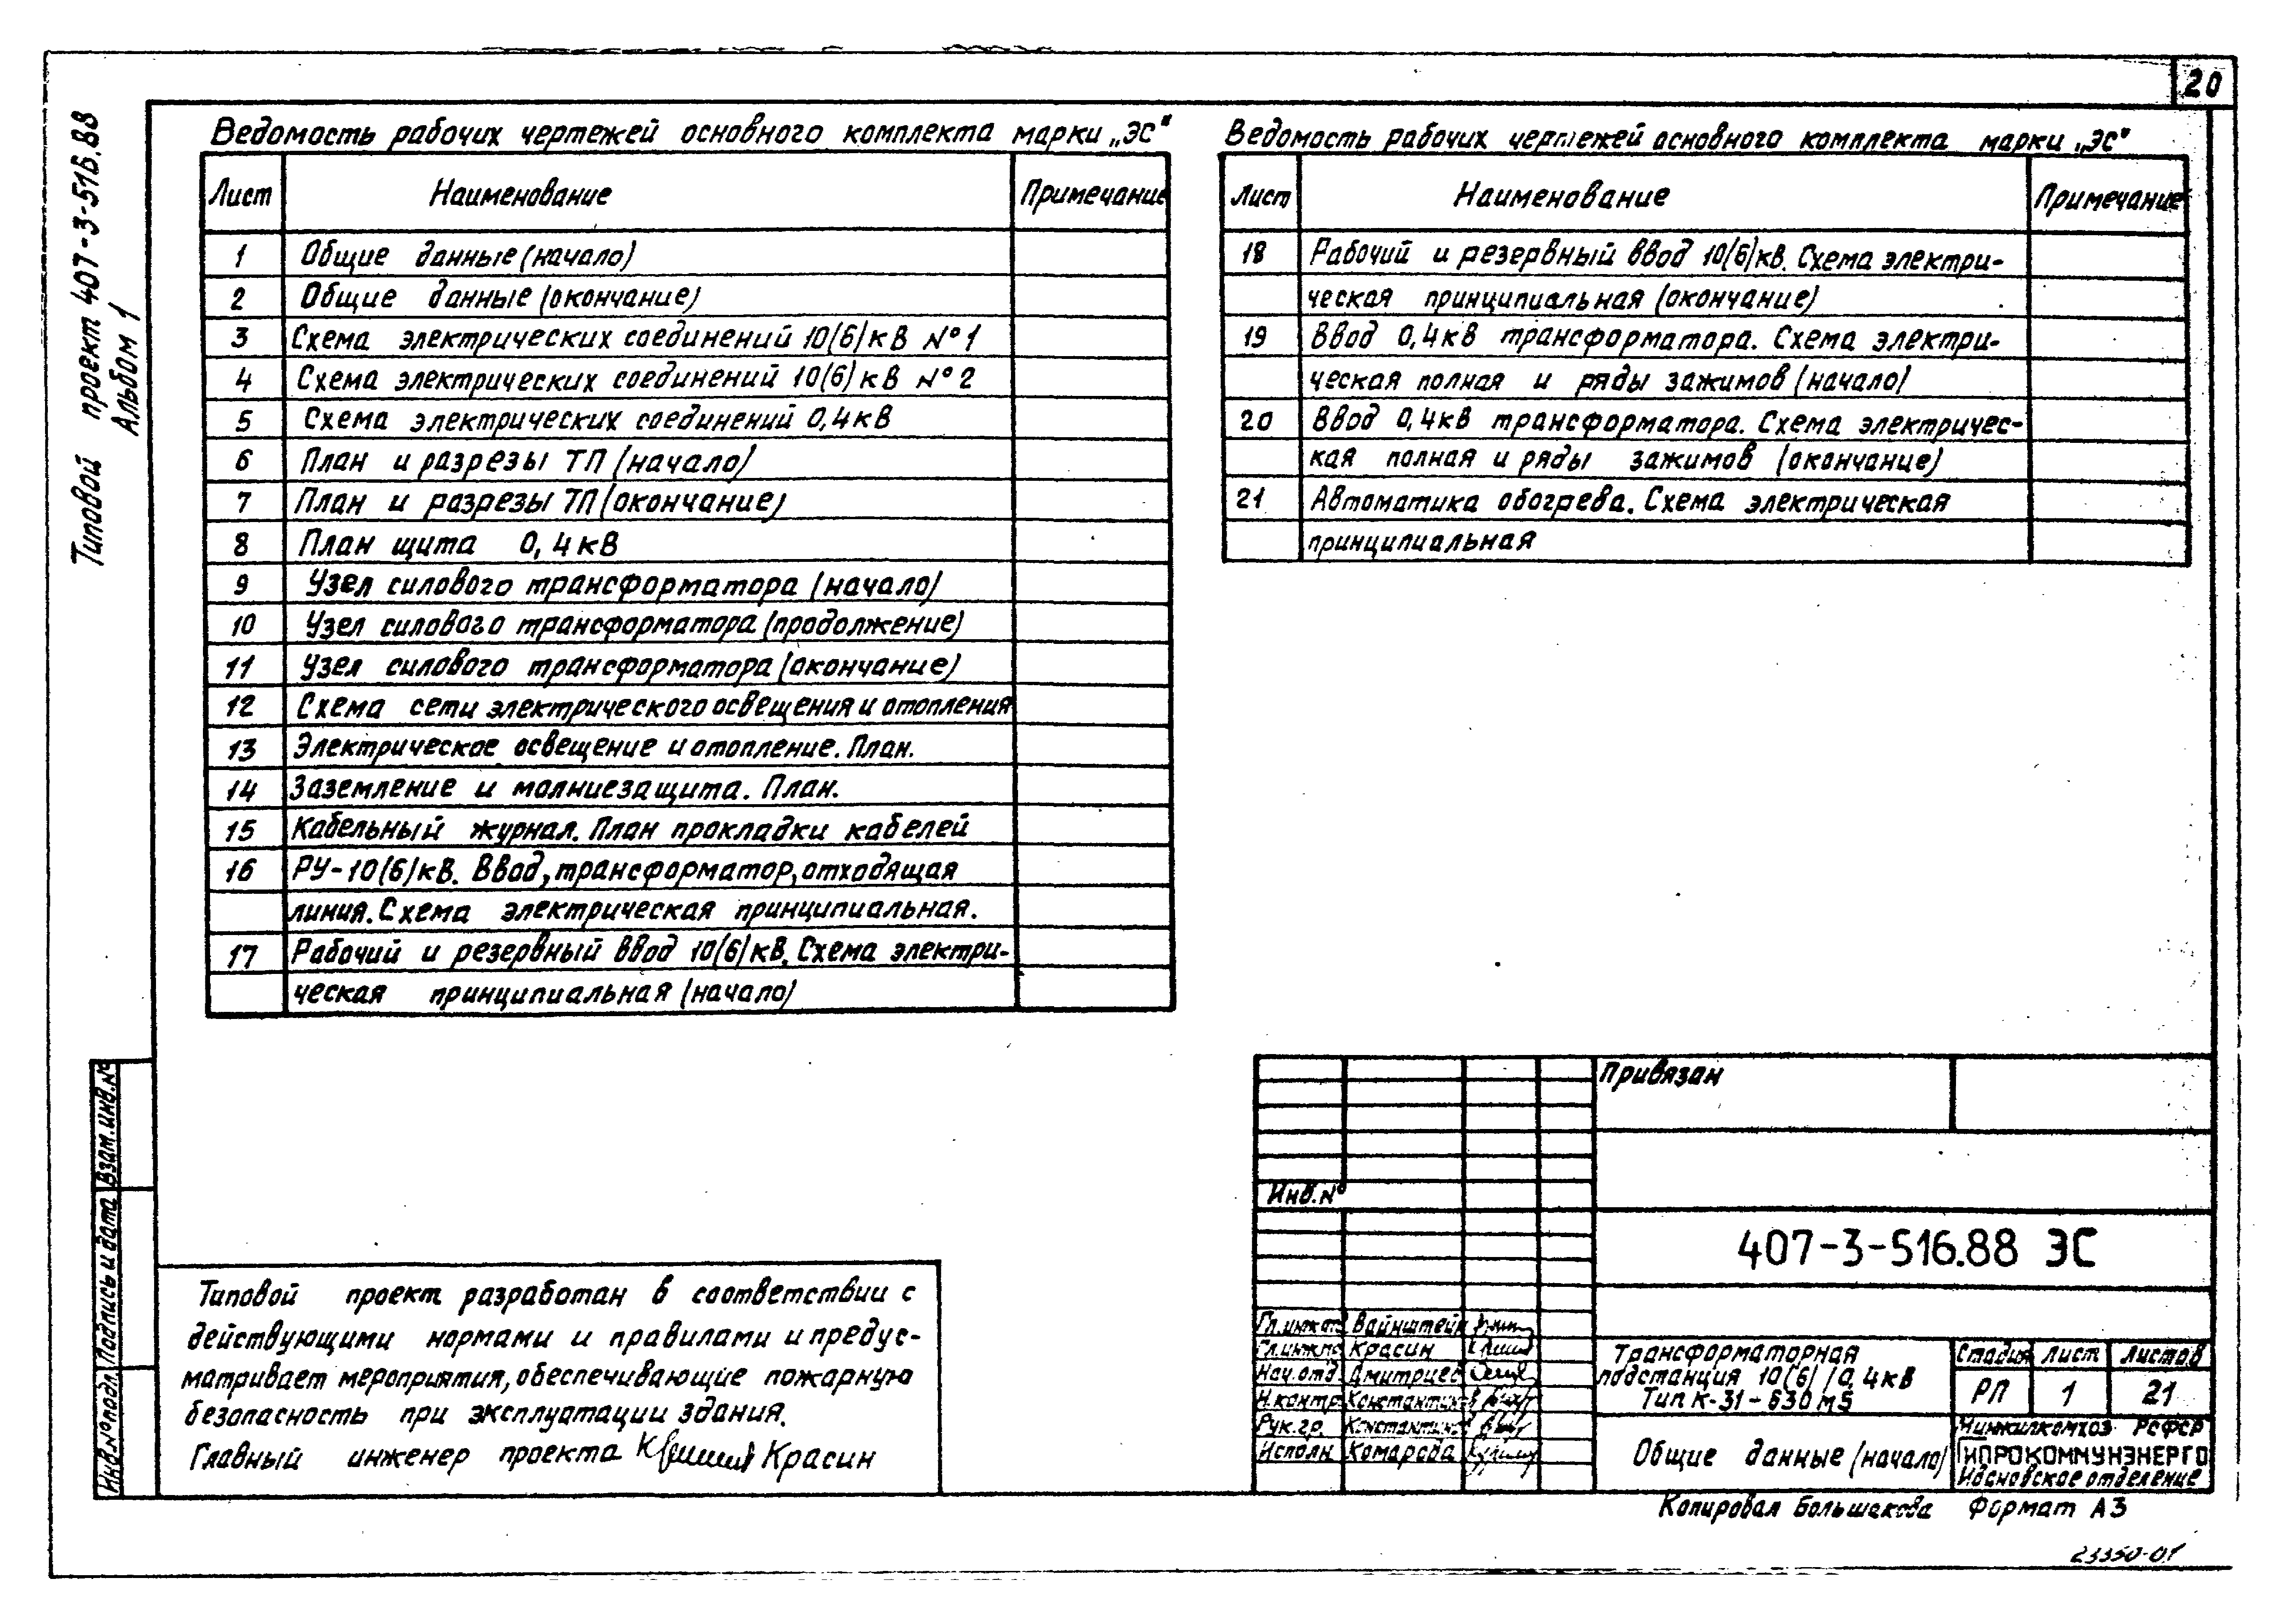 20
Типовой проект 407-3-516.88
Альбом 1
Ведомость рабочих чертежей основного комплекта марки „ЭС"
Лист Наименование Примечание
1 Общие данные (начало)
2 Общие данные (окончание)
3 Схема электрических соединений 10(6)кВ №1
4 Схема электрических соединений 10(6)кВ №2
5 Схема электрических соединений 0,4кВ
6 План и разрезы ТП (начало)
7 План и разрезы ТП (окончание)
8 План щита 0,4кВ
9 Узел силового трансформатора (начало)
10 Узел силового трансформатора (продолжение)
11 Узел силового трансформатора (окончание)
12 Схема сети электрического освещения и отопления
13 Электрическое освещение и отопление. План.
14 Заземление и молниезащита. План.
15 Кабельный журнал. План прокладки кабелей
16 РУ-10(6)кВ. Ввод, трансформатор, отходящая
линия. Схема электрическая принципиальная.
17 Рабочий и резервный ввод 10(6)кВ. Схема электри-
ческая принципиальная (начало)
Ведомость рабочих чертежей основного комплекта марки „ЭС"
Лист Наименование Примечание
18 Рабочий и резервный ввод 10(6)кВ. Схема электри-
ческая принципиальная (окончание)
19 Ввод 0,4кВ трансформатора. Схема электри-
ческая полная и ряды зажимов (начало)
20 Ввод 0,4кВ трансформатора. Схема электричес-
кая полная и ряды зажимов (окончание)
21 Автоматика обогрева. Схема электрическая
принципиальная
Взам. инв. №
Подпись и дата
Инв. № подл.
Типовой проект разработан в соответствии с
действующими нормами и правилами и предус-
матривает мероприятия, обеспечивающие пожарную
безопасность при эксплуатации здания.
Главный инженер проекта Красин
Привязан
Инв. №
407-3-516.88 ЭС
Гл. инж. от. Вайнштейн
Гл. инж. пр. Красин
Нач. отд. Дмитриев
Н. контр. Константинов
Рук. гр. Константинов
Исполн. Комарова
Трансформаторная
подстанция 10(6)/0,4кВ
Тип К-31-630м5
Стадия Лист Листов
РП 1 21
Общие данные (начало)
Минжилкомхоз РСФСР
ГИПРОКОММУНЭНЕРГО
Ивановское отделение
Копировал Большакова Формат А3
23350-01